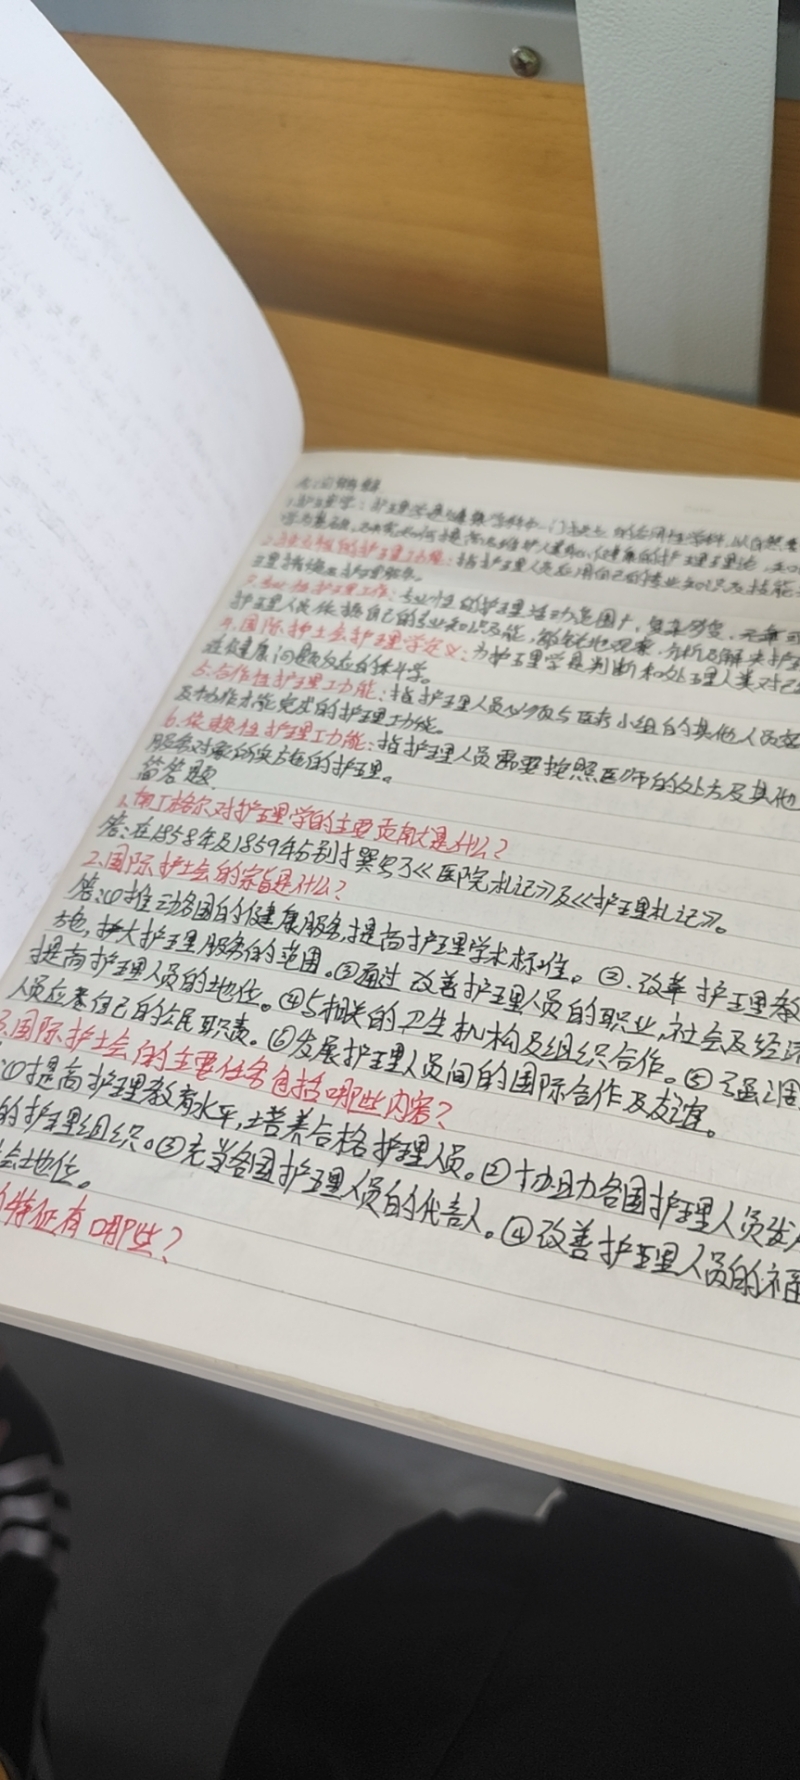 1.护理学:护理学是健康学科中一门独立的应用性学科,以自然
护理措施及护理服务。
3.专业性护理工作:专业性的护理活动范围广,复杂多变,
护理人员依据自己的专业知识及技能,敏锐地观察,分析及解决护
4.国际护士会护理学定义:为护理学是判断和处理人类对已
在健康问题反应的科学。
5.合作性护理功能:指护理人员必须与医疗小组的其他人员
及协作才能完成的护理功能。
6.依赖性护理功能:指护理人员需要按照医师的处方及其他
服务对象的实施的护理。
简答题
1.南丁格尔对护理学的主要贡献是什么?
答:在1858年及1859年分别撰写了《医院札记》及《护理札记》。
2.国际护士会的宗旨是什么?
答:①推动各国的健康服务,提高护理学术标准。②.改革护理教
扩大护理服务的范围。③通过改善护理人员的职业,社会及经济
提高护理人员的地位。④与相关的卫生机构及组织合作。⑤强调
人员应尽自己的公民职责。⑥发展护理人员间的国际合作及友谊。
3.国际护士会的主要任务包括哪些内容?
①提高护理教育水平,培养合格护理人员。②协助各国护理人员发
的护理组织。③充当各国护理人员的代言人。④改善护理人员的福
会地位。
特征有哪些?